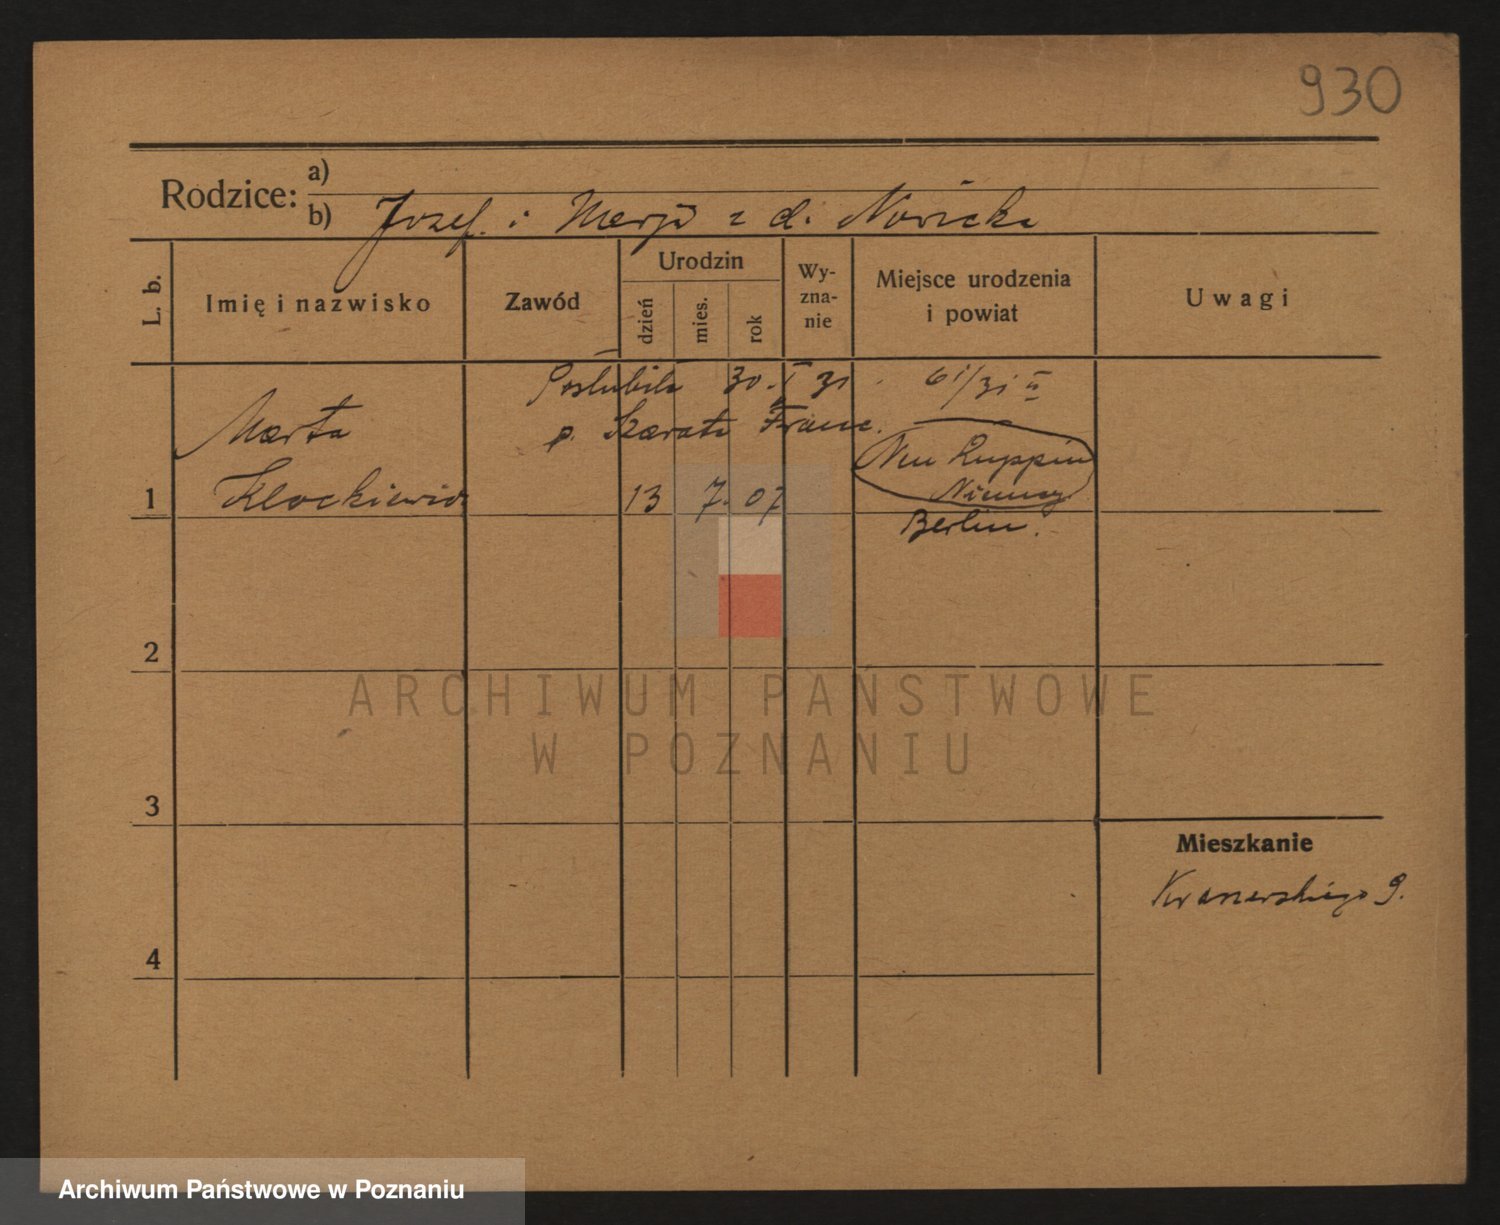 930
Rodzice: a)
b) Jozef. i Marja z d. Nowicka
L. b.
Imię i nazwisko
Zawód
Urodzin
dzień
mies.
rok
Wy-
zna-
nie
Miejsce urodzenia
i powiat
Uwagi
Poślubiła 30. I 31. 61/31 II
Marta p. Franc.
Neu Ruppin
1 Klockiewicz 13 7. 07 Niemcy
Berlin.
2
ARCHIWUM PAŃSTWOWE
W POZNANIU
3
Mieszkanie
9.
4
Archiwum Państwowe w Poznaniu